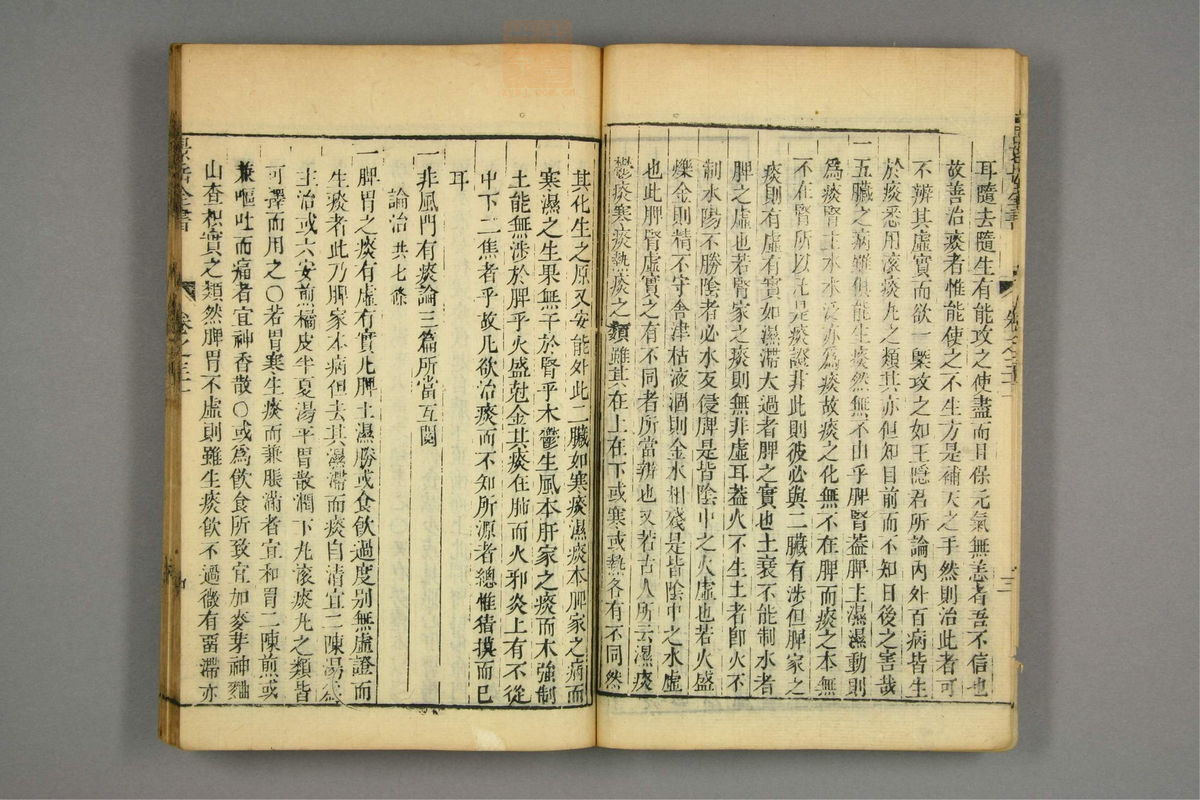 耳隨去隨生有能攻之使盡而且保元氣無恙者吾不信也
故善治痰者惟能使之不生方是補天之手然則治此者可
不辨其虛實而欲一槩攻之如王隱君所論內外百病皆生
於痰悉用滾痰丸之類其亦但知目前而不知日後之害哉
一五臟之病雖俱能生痰然無不由乎脾腎葢脾主濕濕動則
爲痰腎主水水泛亦爲痰故痰之化無不在脾而痰之本無
不在腎所以凡是痰證非此則彼必與二臟有涉但脾家之
痰則有虛有實如濕滯太過者脾之實也土衰不能制水者
脾之虛也若腎家之痰則無非虛耳葢火不生土者卽火不
制水陽不勝陰者必水反侵脾是皆陰中之火虛也若火盛
爍金則精不守舍津枯液涸則金水相殘是皆陰中之水虛
也此脾腎虛實之有不同者所當辨也又若古人所云濕痰
鬱痰寒痰熱痰之類雖其在上在下或寒或熱各有不同然
其化生之原又安能外此二臟如寒痰濕痰本脾家之病而
寒濕之生果無干於腎乎木鬱生風本肝家之痰而木強制
土能無涉於脾乎火盛尅金其痰在肺而火邪炎上有不從
中下二焦者乎故凡欲治痰而不知所源者總惟猜摸而已
耳
一非風門有痰論三篇所當互閱
論治 共七條
一脾胃之痰有虛有實凡脾土濕勝或飲食過度别無虛證而
生痰者此乃脾家本病但去其濕滯而痰自清宜二陳湯爲
主治或六安煎橘皮半夏湯平胃散潤下丸滾痰丸之類皆
可擇而用之〇若胃寒生痰而兼脹滿者宜和胃二陳煎或
兼嘔吐而痛者宜神香散〇或爲飲食所致宜加麥芽神麯
山查枳實之類然脾胃不虛則雖生痰飲不過微有畱滯亦